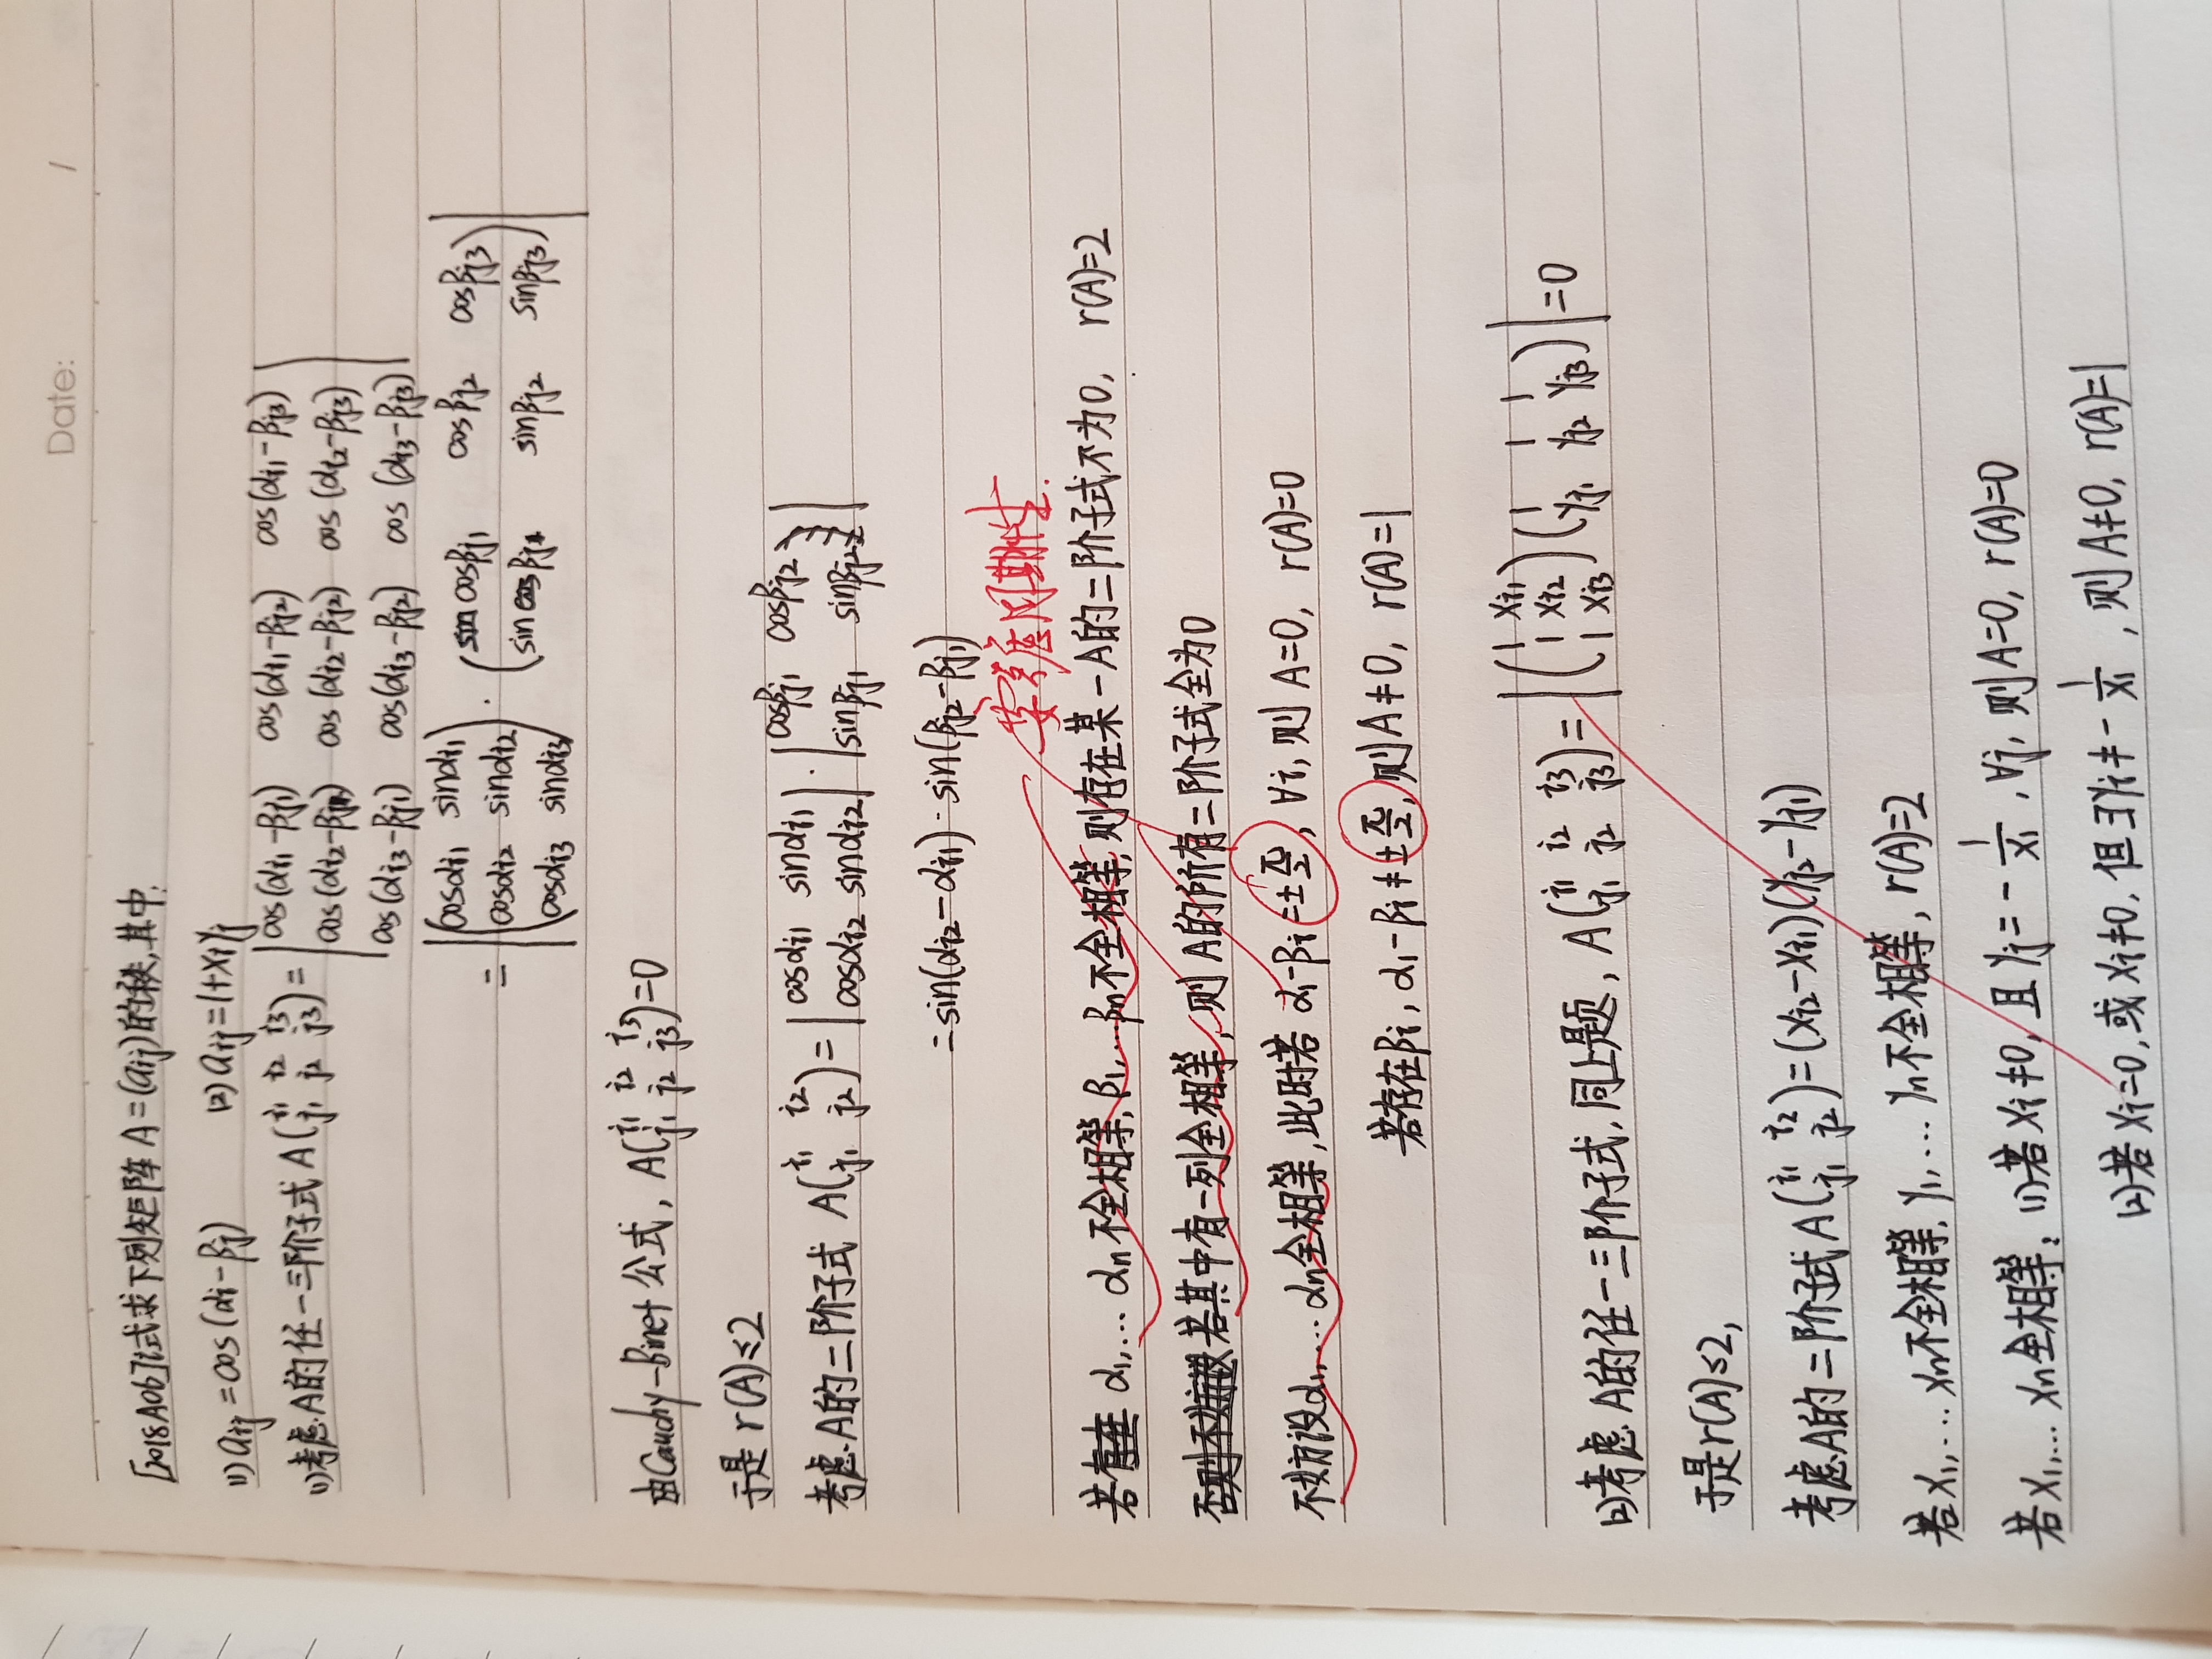 Date: /
[2018A06]试求下列矩阵 A=(aij)的秩,其中:
(1) aij = cos(αi-βj) (2) aij=1+xiyj
(1)考虑A的任一三阶子式 A(i1 i2 i3 j1 j2 j3) = | cos(αi1-βj1) cos(αi1-βj2) cos(αi1-βj3) |
cos(αi2-βj1) cos(αi2-βj2) cos(αi2-βj3)
cos(αi3-βj1) cos(αi3-βj2) cos(αi3-βj3)
= | (cosαi1 sinαi1 · (cosβj1 cosβj2 cosβj3) |
cosαi2 sinαi2 sinβj1 sinβj2 sinβj3
cosαi3 sinαi3)
由Cauchy-Binet公式, A(i1 i2 i3 j1 j2 j3)=0
于是 r(A)≤2
考虑A的二阶子式 A(i1 i2 j1 j2) = | cosαi1 sinαi1 | · | cosβj1 cosβj2 |
cosαi2 sinαi2 sinβj1 sinβj2
= sin(αi2-αi1)·sin(βj2-βj1)
要考虑周期性.
若 α1,…αn不全相等,β1,…βn不全相等,则存在某一A的二阶子式不为0, r(A)=2
若其中有一列全相等,则A的所有二阶子式全为0
不妨设α1,…αn全相等,此时若 α1-βi=±π/2, ∀i,则A=0, r(A)=0
若存在βi, α1-βi≠±π/2,则A≠0, r(A)=1
(2)考虑A的任一三阶子式,同上题, A(i1 i2 i3 j1 j2 j3) = | (1 xi1 1 xi2 1 xi3)(1 1 1 yj1 yj2 yj3) | =0
于是r(A)≤2,
考虑A的二阶子式 A(i1 i2 j1 j2)=(xi2-xi1)(yj2-yj1)
若x1,…xn不全相等,y1,…yn不全相等, r(A)=2
若x1,…xn全相等: (1)若xi≠0,且yj=-1/x1, ∀j,则A=0, r(A)=0
(2)若xi=0,或xi≠0,但∃yi≠-1/x1,则A≠0, r(A)=1